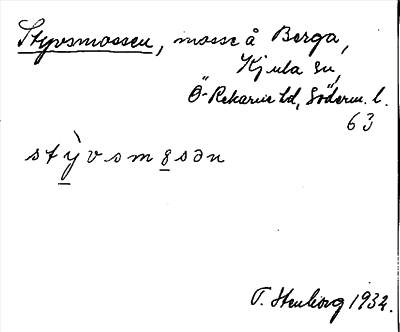 Styvsmossen, mosse å Berga,
Kjula sn,
Ö-Rekarne hd, Söderm. l.
63
stỳvsmo̲sən
T. Stenborg 1932.